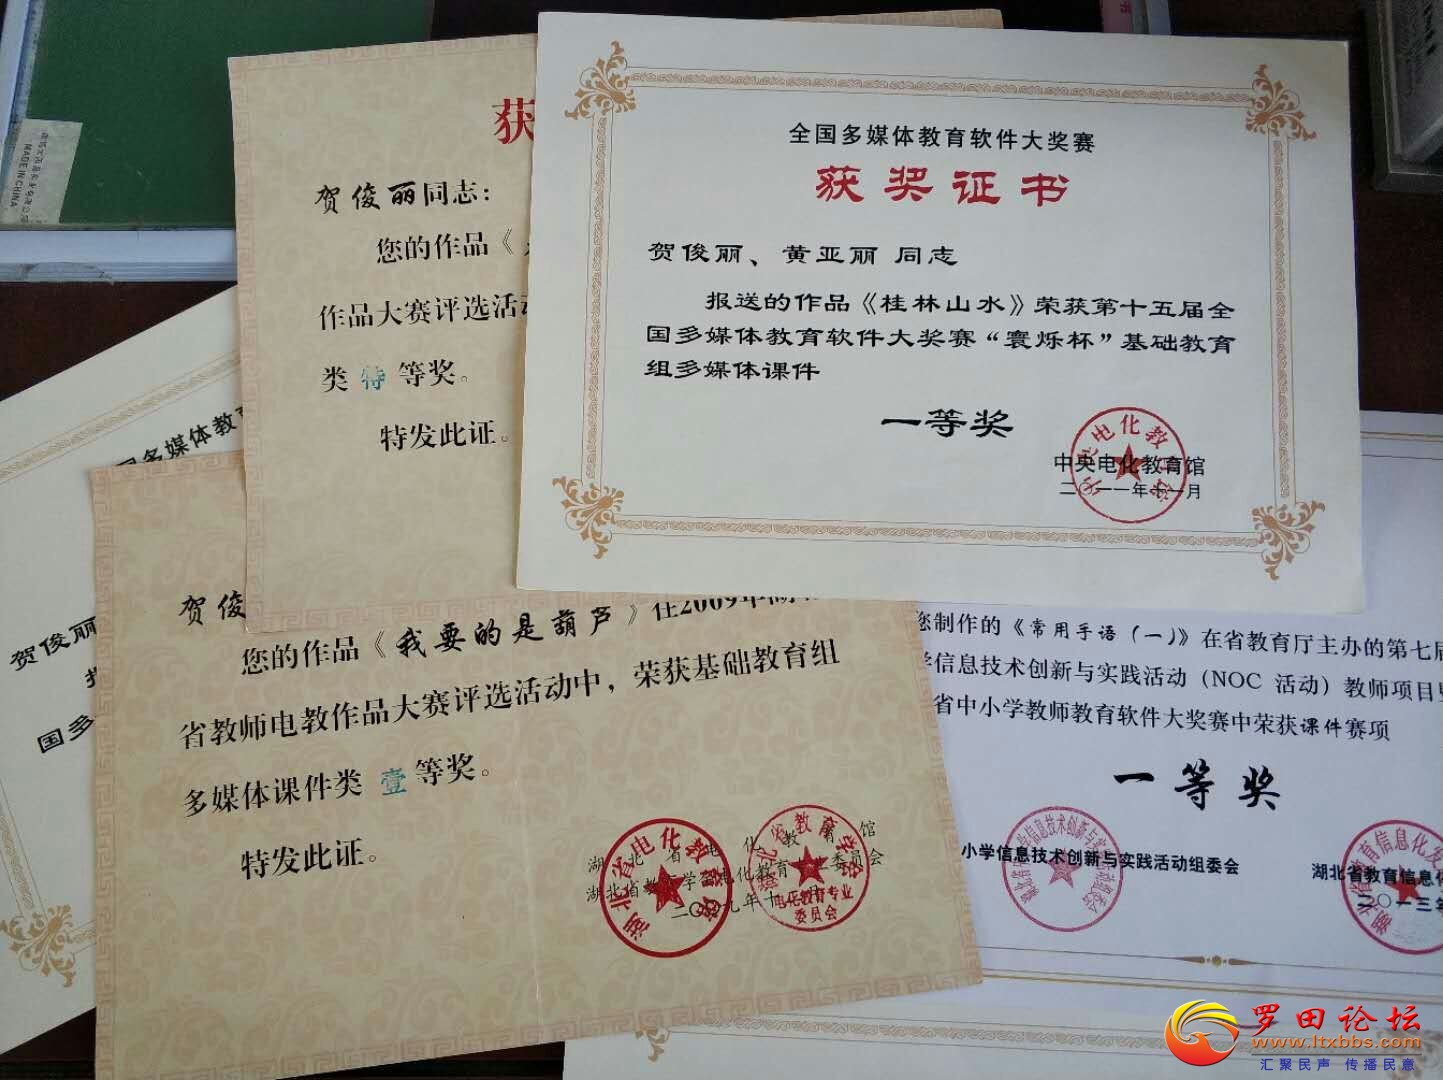 MADE IN CHINA
获
贺俊丽同志：
您的作品《
作品大赛评选活动
类 特 等奖。
特发此证。
全国多媒体教育软件大奖赛
获奖证书
贺俊丽、黄亚丽 同志
报送的作品《桂林山水》荣获第十五届全
国多媒体教育软件大奖赛“寰烁杯”基础教育
组多媒体课件
一等奖
中央电化教育馆
二〇一一年十一月
国多媒体教育
贺俊丽
国多
贺俊
您的作品《我要的是葫芦》在2009年湖
省教师电教作品大赛评选活动中，荣获基础教育组
多媒体课件类 壹 等奖。
特发此证。
湖北省电化教育馆
湖北省教育学会电化教育专业委员会
二〇〇九年十
湖北省电化教育馆
湖北省教育学会
电化教育专业
委员会
您制作的《常用手语（一）》在省教育厅主办的第七届
学信息技术创新与实践活动（NOC 活动）教师项目暨
省中小学教师教育软件大奖赛中荣获课件赛项
一等奖
小学信息技术创新与实践活动组委会
湖北省教育信息化
二〇一三年
罗田论坛
www.ltxbbs.com
汇聚民声 传播民意